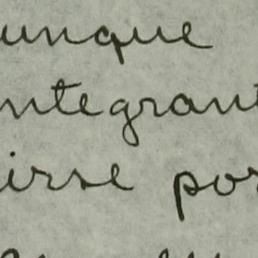 unque
ntegran
irse por